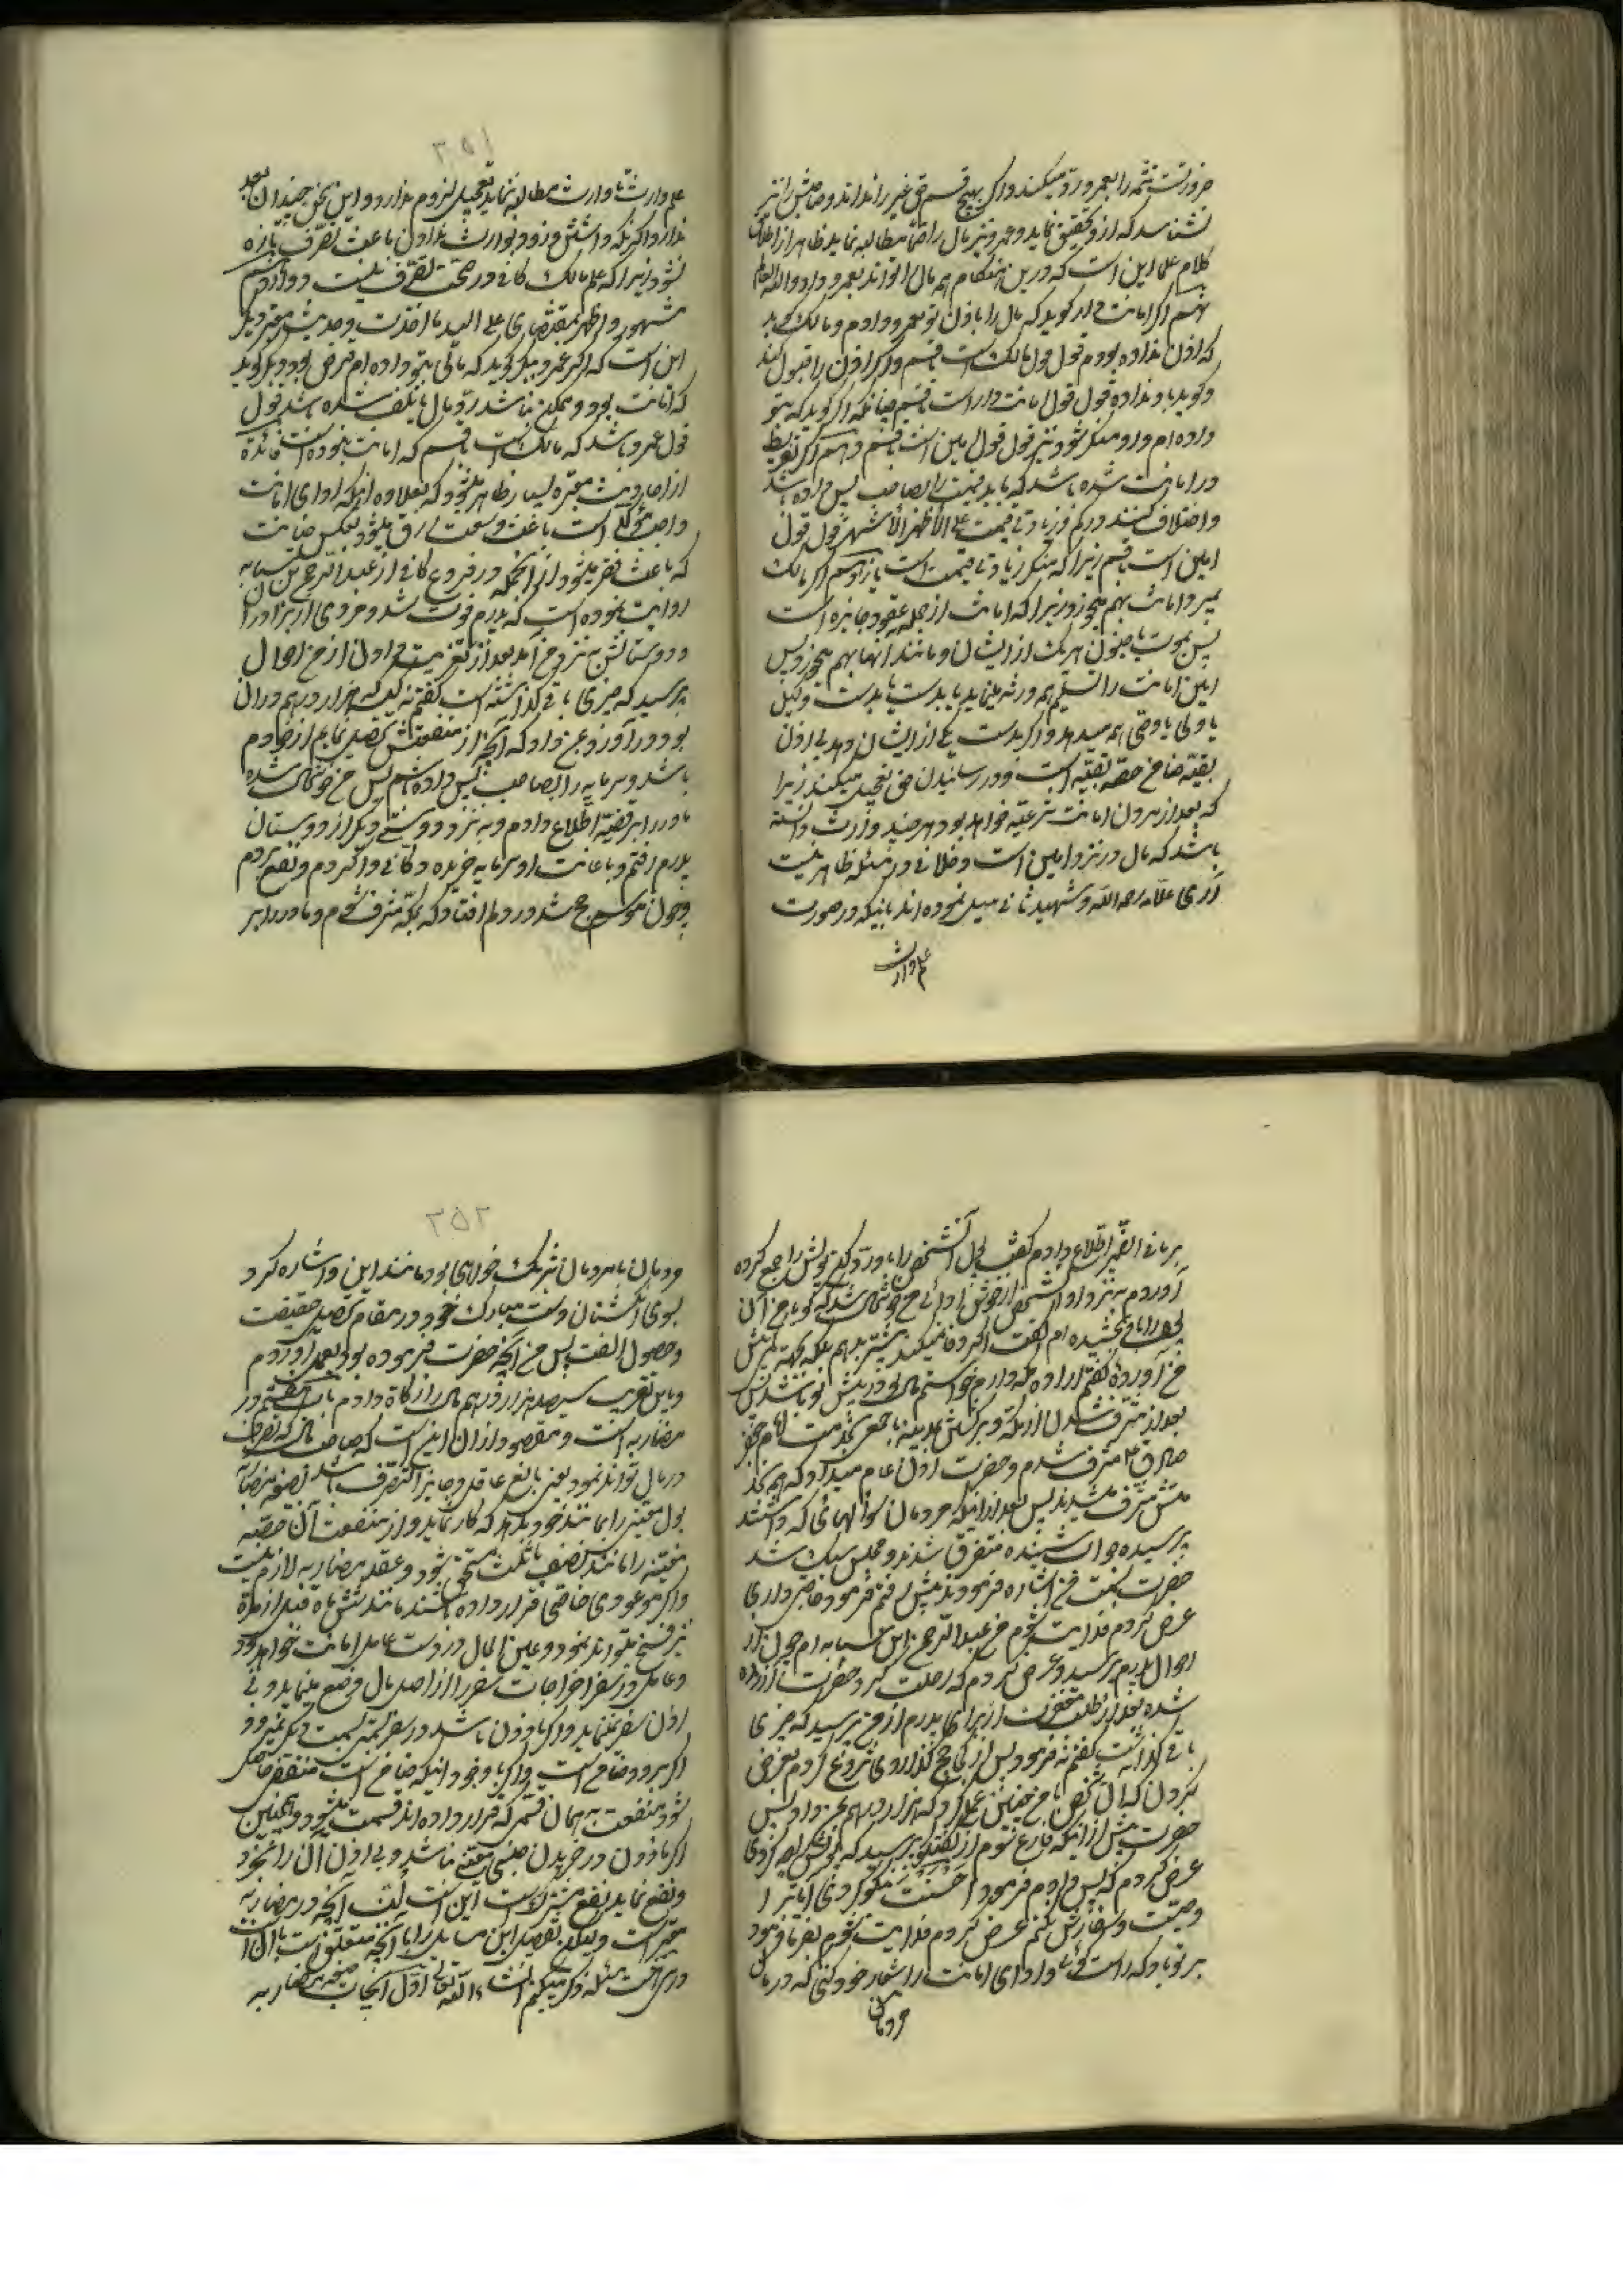 ضرورتست تتمه را بعمرو رد میکند و اگر بهیچ قسم حق غیر را نداند و صاحبش را نیز
نشناسد که ازو تحقیق نماید و عمرو نیز مال را مطالبه نماید ظاهر از اطلاق
کلام علما این است که درین هنکام همه مال را تواند بعمرو داد والله العالم
نهم اگر امانت دار کوید که مال را باذن تو بعمرو دادم و مالک کوید
که اذن نداده بودم قول قول مالک است بقسم و اگر اذن را قبول کند
و کوید باو نداده قول قول امانت دار است بقسم چنانکه اگر کوید که بتو
داده ام و او منکر شود نیز قول قول امین است بقسم دهم اگر تفریط
در امانت شده باشد که باید قیمت را بصاحب پس داده باشد
و اختلاف کنند در کم و زیادتی قیمت علی الاظهر الاشهر قول قول
امین است بقسم زیرا که منکر زیادتی قیمت است یازدهم اگر مالک
بمیرد امانت بهم میخورد زیرا که امانت از جمله عقود جایزه است
پس بموت یا جنون هر یک از ایشان و مانند آنها بهم میخورد پس
امین امانت را تسلیم همه ورثه مینماید یا بدست بدست وکیل
یا ولی یا وصی همه میدهد و اگر بدست یکی از ایشان دهد بی اذن
بقیه ضامن حصه بقیه است و در رسانیدن حق تعجیل میکند زیرا
که بعد از مردن امانت شرعیه خواهد بود هر چند وارث دانسته
باشد که مال در نزد امین است و خلافی در مسئله ظاهر نیست
آری علامه رحمه الله و شهید ثانی میل نموده اند باینکه در صورت
علم وارث
۲۵۱
علم وارث تا وارث مطالبه ننماید تعجیل لزوم ندارد و این سخن چندان بعد
ندارد اگرنه که داشتن و زود بوارث ندادن باعث تصرف تازه
نشود زیرا که علم مالک کافی در صحت تصرف نیست دوازدهم
مشهور و اظهر بمقتضای علی الید ما اخذت و حدیث معتبر دیگر
این است که اگر عمرو ببکر کوید که مالی بتو داده ام قرض بود و بکر کوید
که امانت بود و ممکن نباشد رد مال یا تلف شده باشد قول
قول عمرو باشد که مالک است بقسم که امانت نبوده است فائدة
از احادیث معتبره بسیار ظاهر میشود که بعلاوه آنکه ادای امانت
واجب مؤکد است باعث وسعت رزق میشود بعکس خیانت
که باعث فقر میشود از آنجمله در فروع کافی از عبدالرحمن بن سیابه
روایت نموده است که پدرم فوت شد و مردی از برادران
و دوستانش به نزد من آمد بعد از تعزیت من اول از من احوال
پرسید که چیزی باقی کذاشته است کفتم نه کیسه که هزار درهم در آن
بود در آورد و بمن داد که آنچه از منفعتش تحصیل نمایم از خودم
باشد و سرمایه را بصاحبش پس داده باشم پس من خوشحال شده
مادر را بر قضیه اطلاع دادم و به نزد دوستی دیگر از دوستان
پدرم رفتم و باعانت او سرمایه خریده دکانی وا کردم و نفع بردم
و چون موسم حج شد در دلم افتاد که بمکه مشرف شوم و مادر را بر
بر ما فی الضمیر اطلاع دادم کفت اول آنشخص را باو رد کن پولش را جمع کرده
آوردم به نزد او و آنشخص از خوش ادائی من خوشحال شد که کویا من آن
را باو بخشیده ام کفت اگر وفا نمیکند بیشتر بدهم بلکه بجهت کمیش
من آورده کفتم اراده مکه دارم خواستم مال تو در پیش تو باشد پس
بعد از مشرف شدن از مکه و برکشتن بمدینه با جمعی بخدمت امام جعفر
صادق ع مشرف شدم و حضرت اذن عام میداد که همه بخد
متش مشرف میشدند پس بعد از اینکه مردمان سؤالهائی که داشتند
پرسیده جواب شنیده متفرق شدند و مجلس سبک شد
حضرت بسمت من اشاره فرمودند پیش رفتم فرمود حاجتی داری
عرض کردم فدایت شوم من عبدالرحمن ابن سیابه ام چون از
احوال پدرم پرسید و عرض کردم که رحلت کرد حضرت آزرده
شده بعد از طلب مغفرت از برای پدرم از من پرسید که چیزی
باقی کذاشت کفتم نه فرمود پس از کجا حج کذاردی شروع کردم بعرض
کردن که آن شخص با من چنین عمل کرد که هزار درهم بمن داد پس
حضرت پیش از اینکه فارغ شوم از کفتکو پرسید که پولش چه کردی
عرض کردم که پس دادم فرمود احسنت نیکو کردی آیا ترا
وصیت و سفارش بکنم عرض کردم فدایت شوم بفرما فرمود
بر تو باد که راست کوئی و ادای امانت را شعار خود کنی که در مال
مردمان
۲۵۲
مردمان با مردمان شریک خواهی بود مانند این و اشاره کرد
بسوی انکشتان دست مبارک خود در مقام تحصیل حقیقت
و حصول الفت پس من آنچه حضرت فرموده بود بعمل آوردم
و باین تقریب سیصد هزار درهم مال را زکاة دادم باب هشتم در
مضاربه است و مقصود از آن اینست که صاحب مال که تصرف
در مال تواند نمود یعنی بالغ عاقل و جایز التصرف باشد بصیغه مضاربه
پول معینی را بمانند خود بدهد که کار نماید و از منفعت آن حصه
معینه را مانند نصف یا ثلث مستحق شود و عقد مضاربه لازم نیست
و اگر موعودی خاصی قرار داده باشند مانند شش ماه قبل از مدة
نیز فسخ میتواند نمود و عین المال در دست عامل امانت خواهد بود
و عامل در سفر اخراجات سفر را از اصل مال وضع مینماید و بی
اذن سفر نمینماید و اگر ماذون باشد در سفر سمتی بسمت دیگر نمیرود
اگر برود ضامن است و اگر با وجود اینکه ضامن است منفعتی حاصل
شود منفعت به همان قسم که قرار داده اند قسمت میشود و همچنین
اگر ماذون در خریدن جنسی معینی باشد و بی اذن آن را نخرد
و نفع نماید نفع مشترک است این است آنچه در مضاربه
معتبر است و لیکن تفصیل این مسایل را با آنچه متعلق است بآن
در سه مسئله ذکر میکنم انشاء الله تعالی اول ایجاب صیغه مضاربه